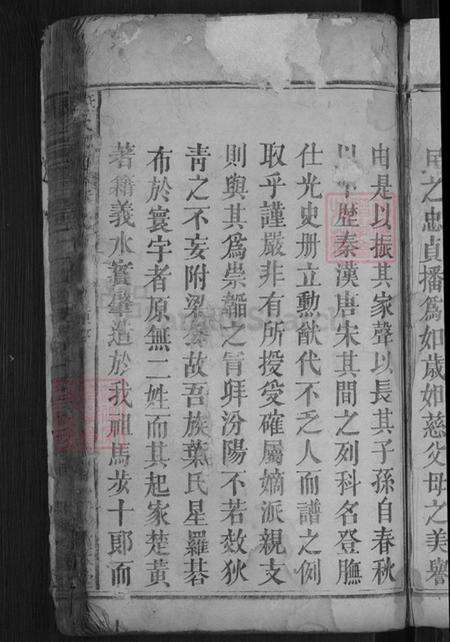 民之忠貞播爲如歲如慈父母之美譽
由是以振其家聲以長其子孫自春秋
以來歷秦漢唐宋其間之列科名登膴
仕光史册立勳猷代不乏人而譜之例
取乎謹嚴非有所授受確屬嫡派親支
則與其爲祟韜之冒拜汾陽不若效狄
青之不妄附梁公故吾族葉氏星羅碁
布於寰宇者原無二姓而其起家楚黃
著籍義水實肇造於我祖馬蛟十郎而